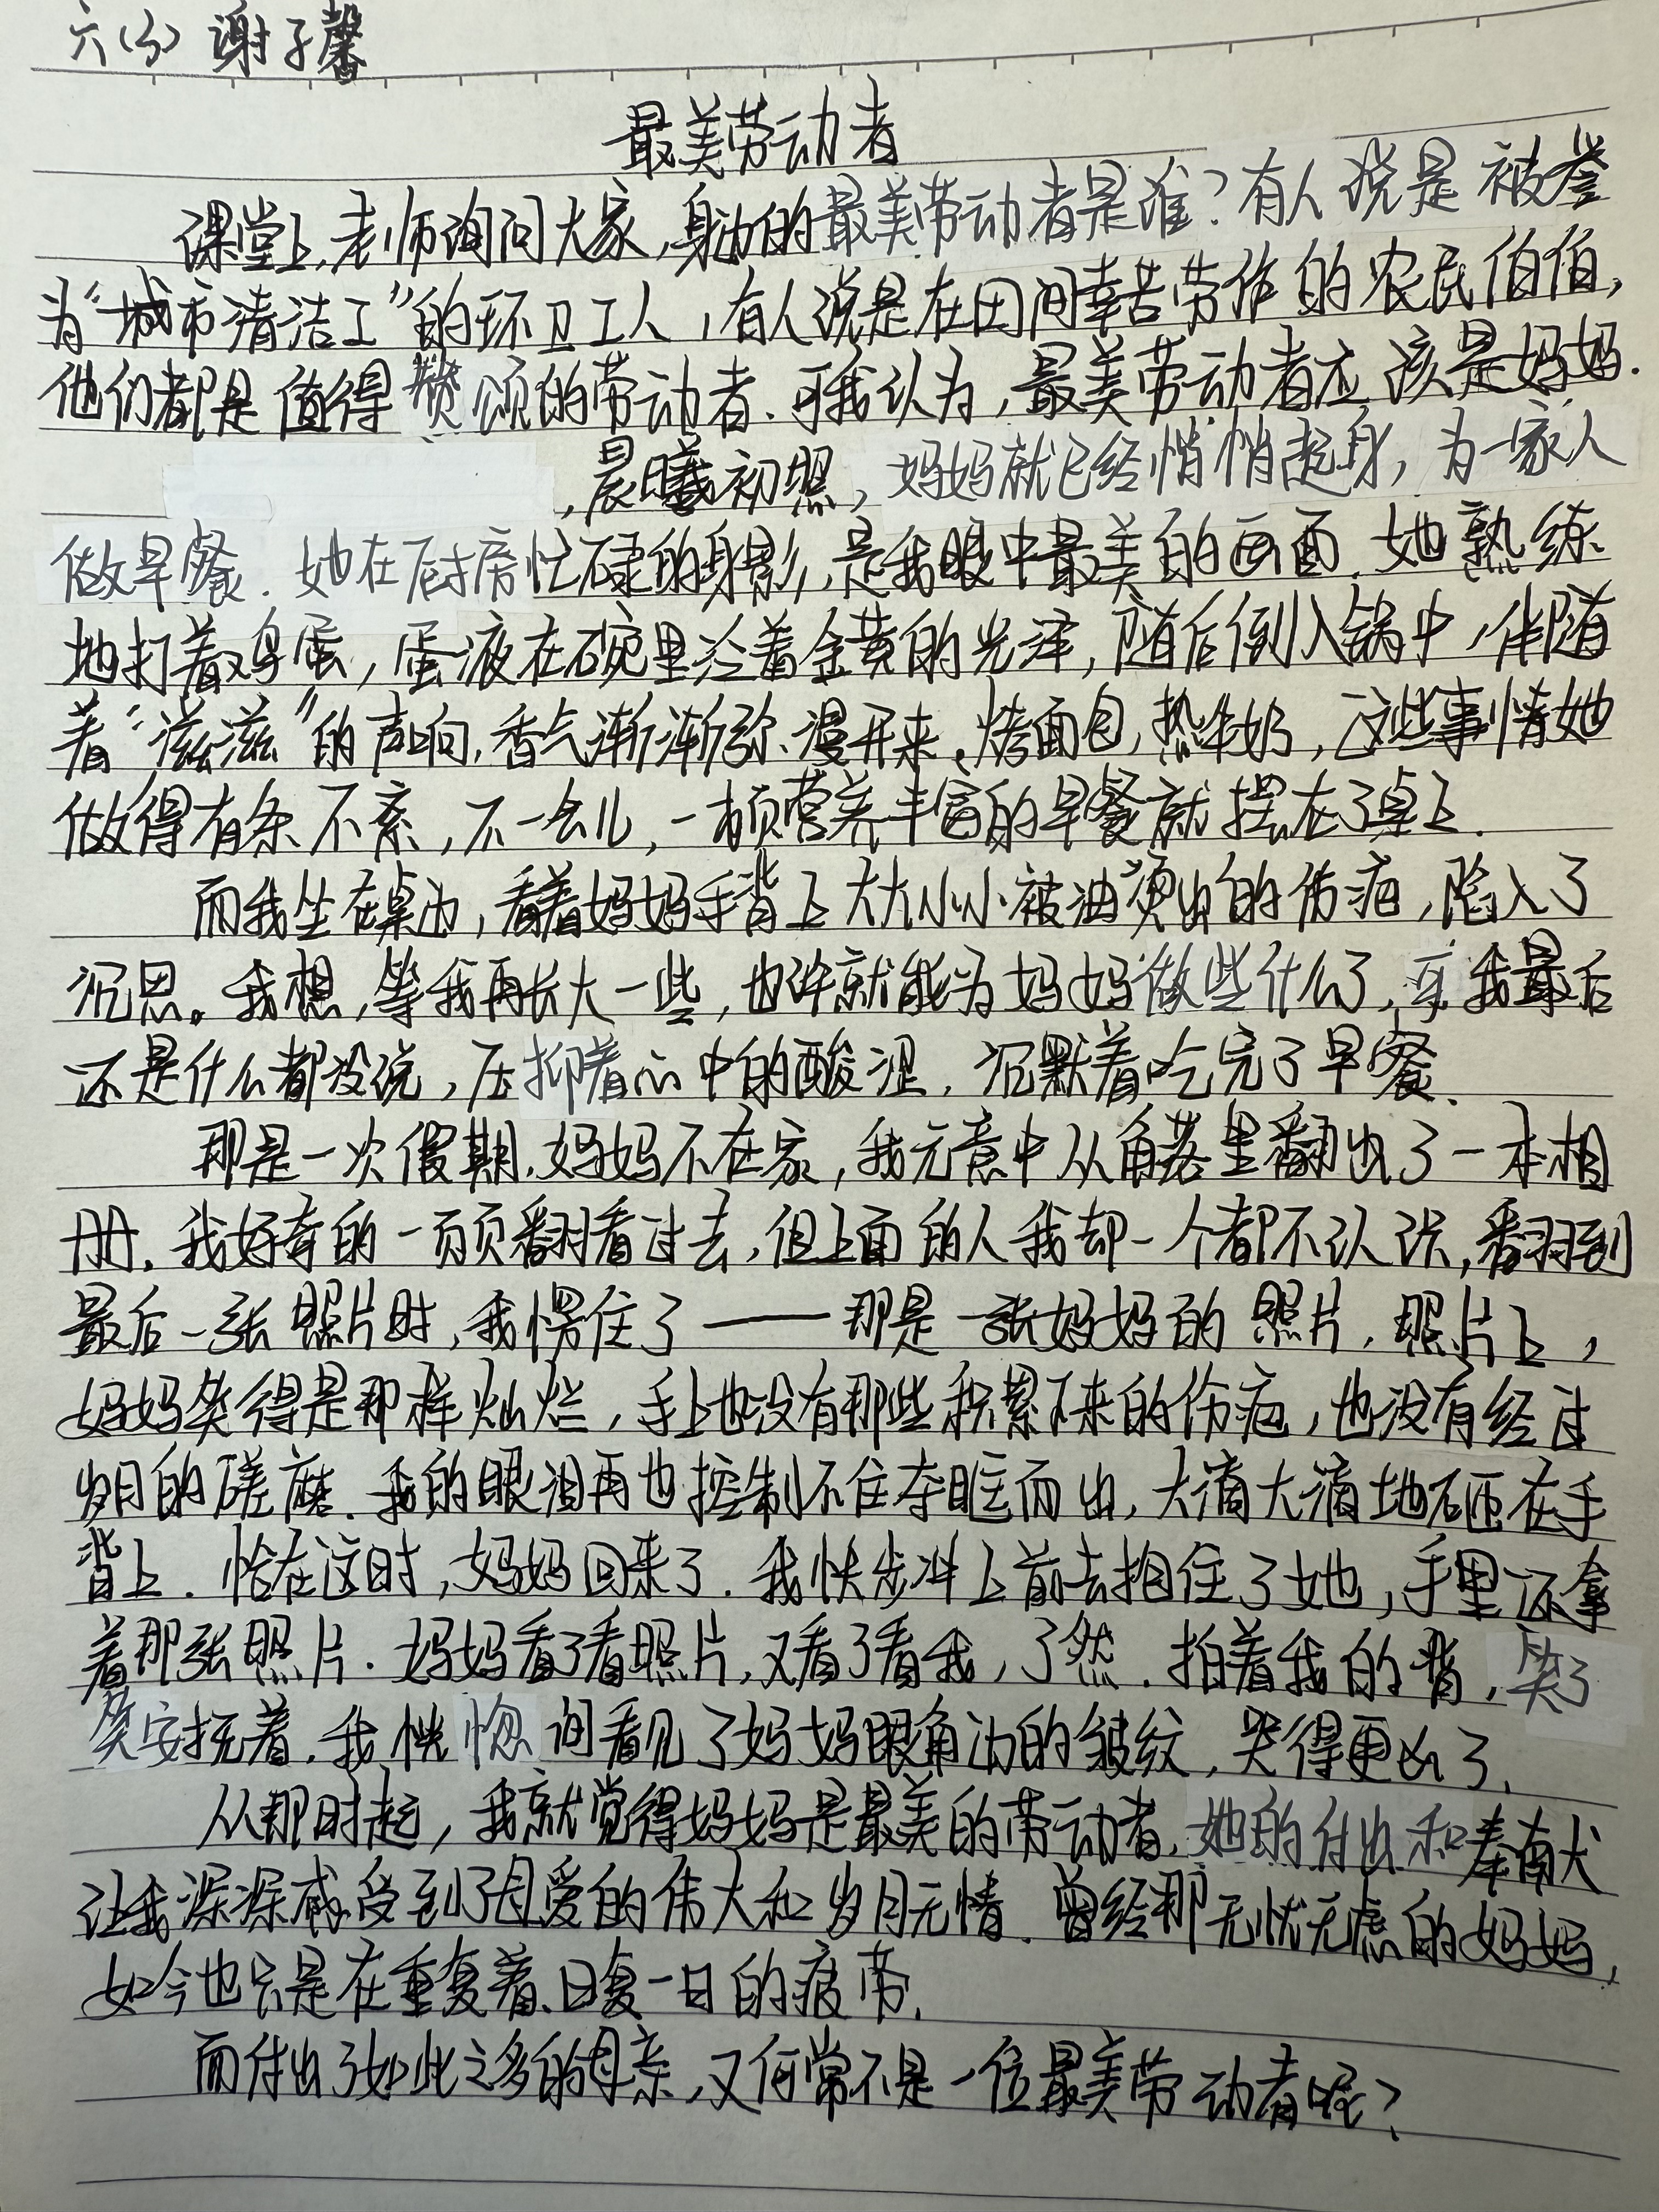 六(3) 谢子馨
最美劳动者
课堂上,老师询问大家,身边的最美劳动者是谁?有人说是被誉
为“城市清洁工”的环卫工人,有人说是在田间辛苦劳作的农民伯伯,
他们都是值得赞颂的劳动者.可我认为,最美劳动者应该是妈妈.
,晨曦初照,妈妈就已经悄悄起身,为一家人
做早餐.她在厨房忙碌的身影,是我眼中最美的画面.她熟练
地打着鸡蛋,蛋液在碗里泛着金黄的光泽,随后倒入锅中,伴随
着“滋滋”的声响,香气渐渐弥漫开来.烤面包,热牛奶,这些事情她
做得有条不紊,不一会儿,一顿营养丰富的早餐就摆在了桌上.
而我坐在桌边,看着妈妈手背上大大小小被油烫出的伤疤,陷入了
沉思。我想,等我再长大一些,也许就能为妈妈做些什么了,可我最后
还是什么都没说,压抑着心中的酸涩,沉默着吃完了早餐.
那是一次假期,妈妈不在家,我无意中从角落里翻出了一本相
册.我好奇的一页页翻看过去,但上面的人我却一个都不认识,翻到
最后一张照片时,我愣住了——那是一张妈妈的照片,照片上,
妈妈笑得是那样灿烂,手上也没有那些积累下来的伤疤,也没有经过
岁月的磋磨.我的眼泪再也控制不住夺眶而出,大滴大滴地砸在手
背上.恰在这时,妈妈回来了.我快步冲上前去抱住了她,手里还拿
着那张照片.妈妈看了看照片,又看了看我,了然.拍着我的背,笑了
笑安抚着.我恍惚间看见了妈妈眼角边的皱纹,哭得更凶了.
从那时起,我就觉得妈妈是最美的劳动者.她的付出和奉献
让我深深感受到了母爱的伟大和岁月无情.曾经那无忧无虑的妈妈,
如今也只是在重复着日复一日的疲劳.
而付出了如此之多的母亲,又何常不是一位最美劳动者呢?